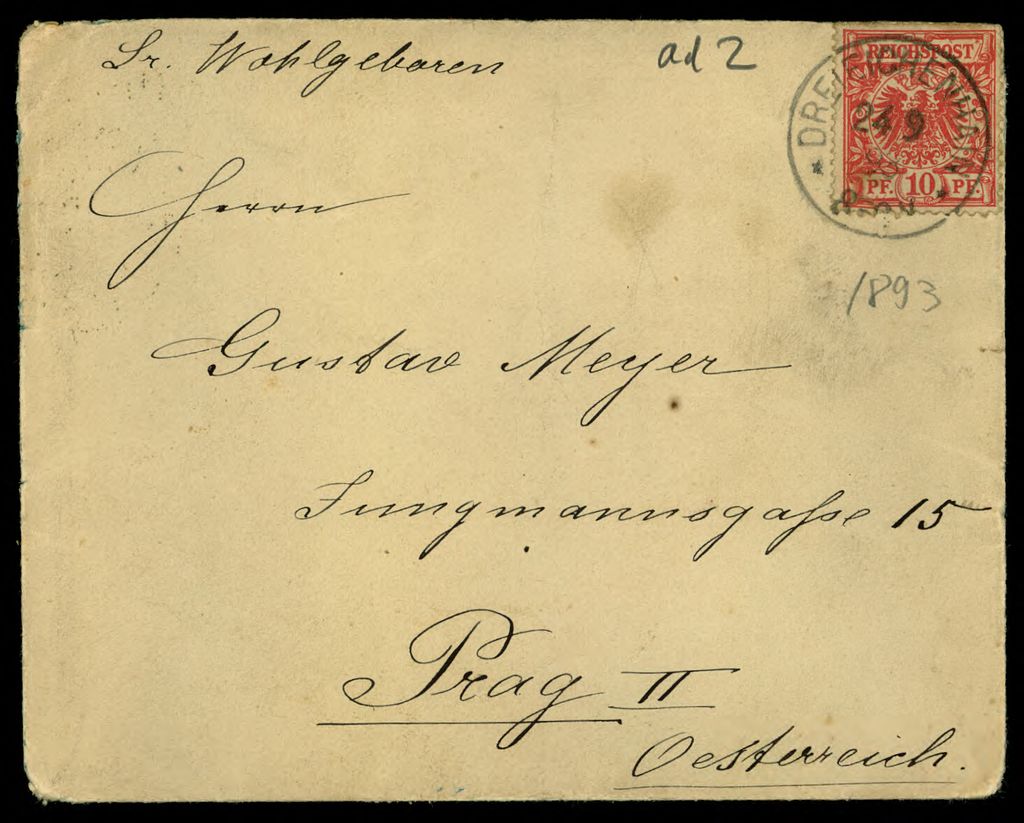 Sr. Wohlgeboren
ad 2
REICHSPOST
DREIEICHENHAIN
24 9
PF. 10 PF.
1893
Herrn
Gustav Meyer
Jungmannsgasse 15
Prag II
Oesterreich.